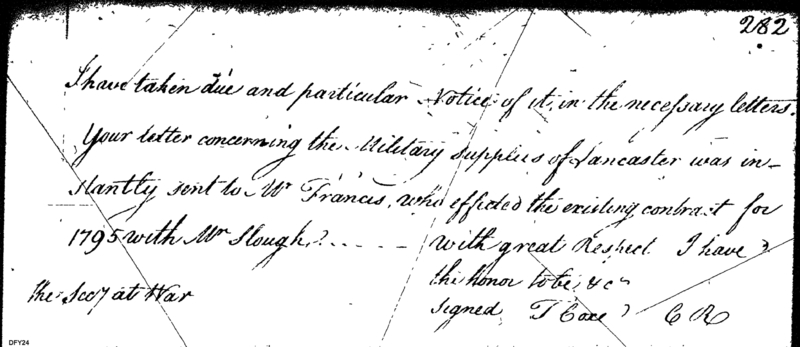 282
I have taken due and particular Notice of it, in the necessary letters.
Your letter concerning the Military supplies of Lancaster was in-
stantly sent to Mr Francis, who effected the existing contract for
1795 with Mr Slough. - - - - - with great Respect I have
the honor to be &c
the Secy at War
signed T Coxe C R
DFY24